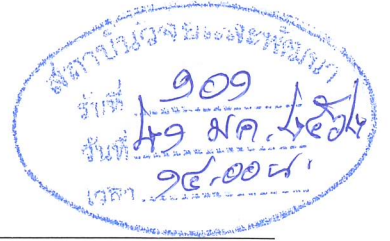 สถาบันวิจัยและพัฒนา
รับที่ ๑๐๑
วันที่ ๒๑ มค. ๒๕๖๒
เวลา ๑๔.๐๐ น.